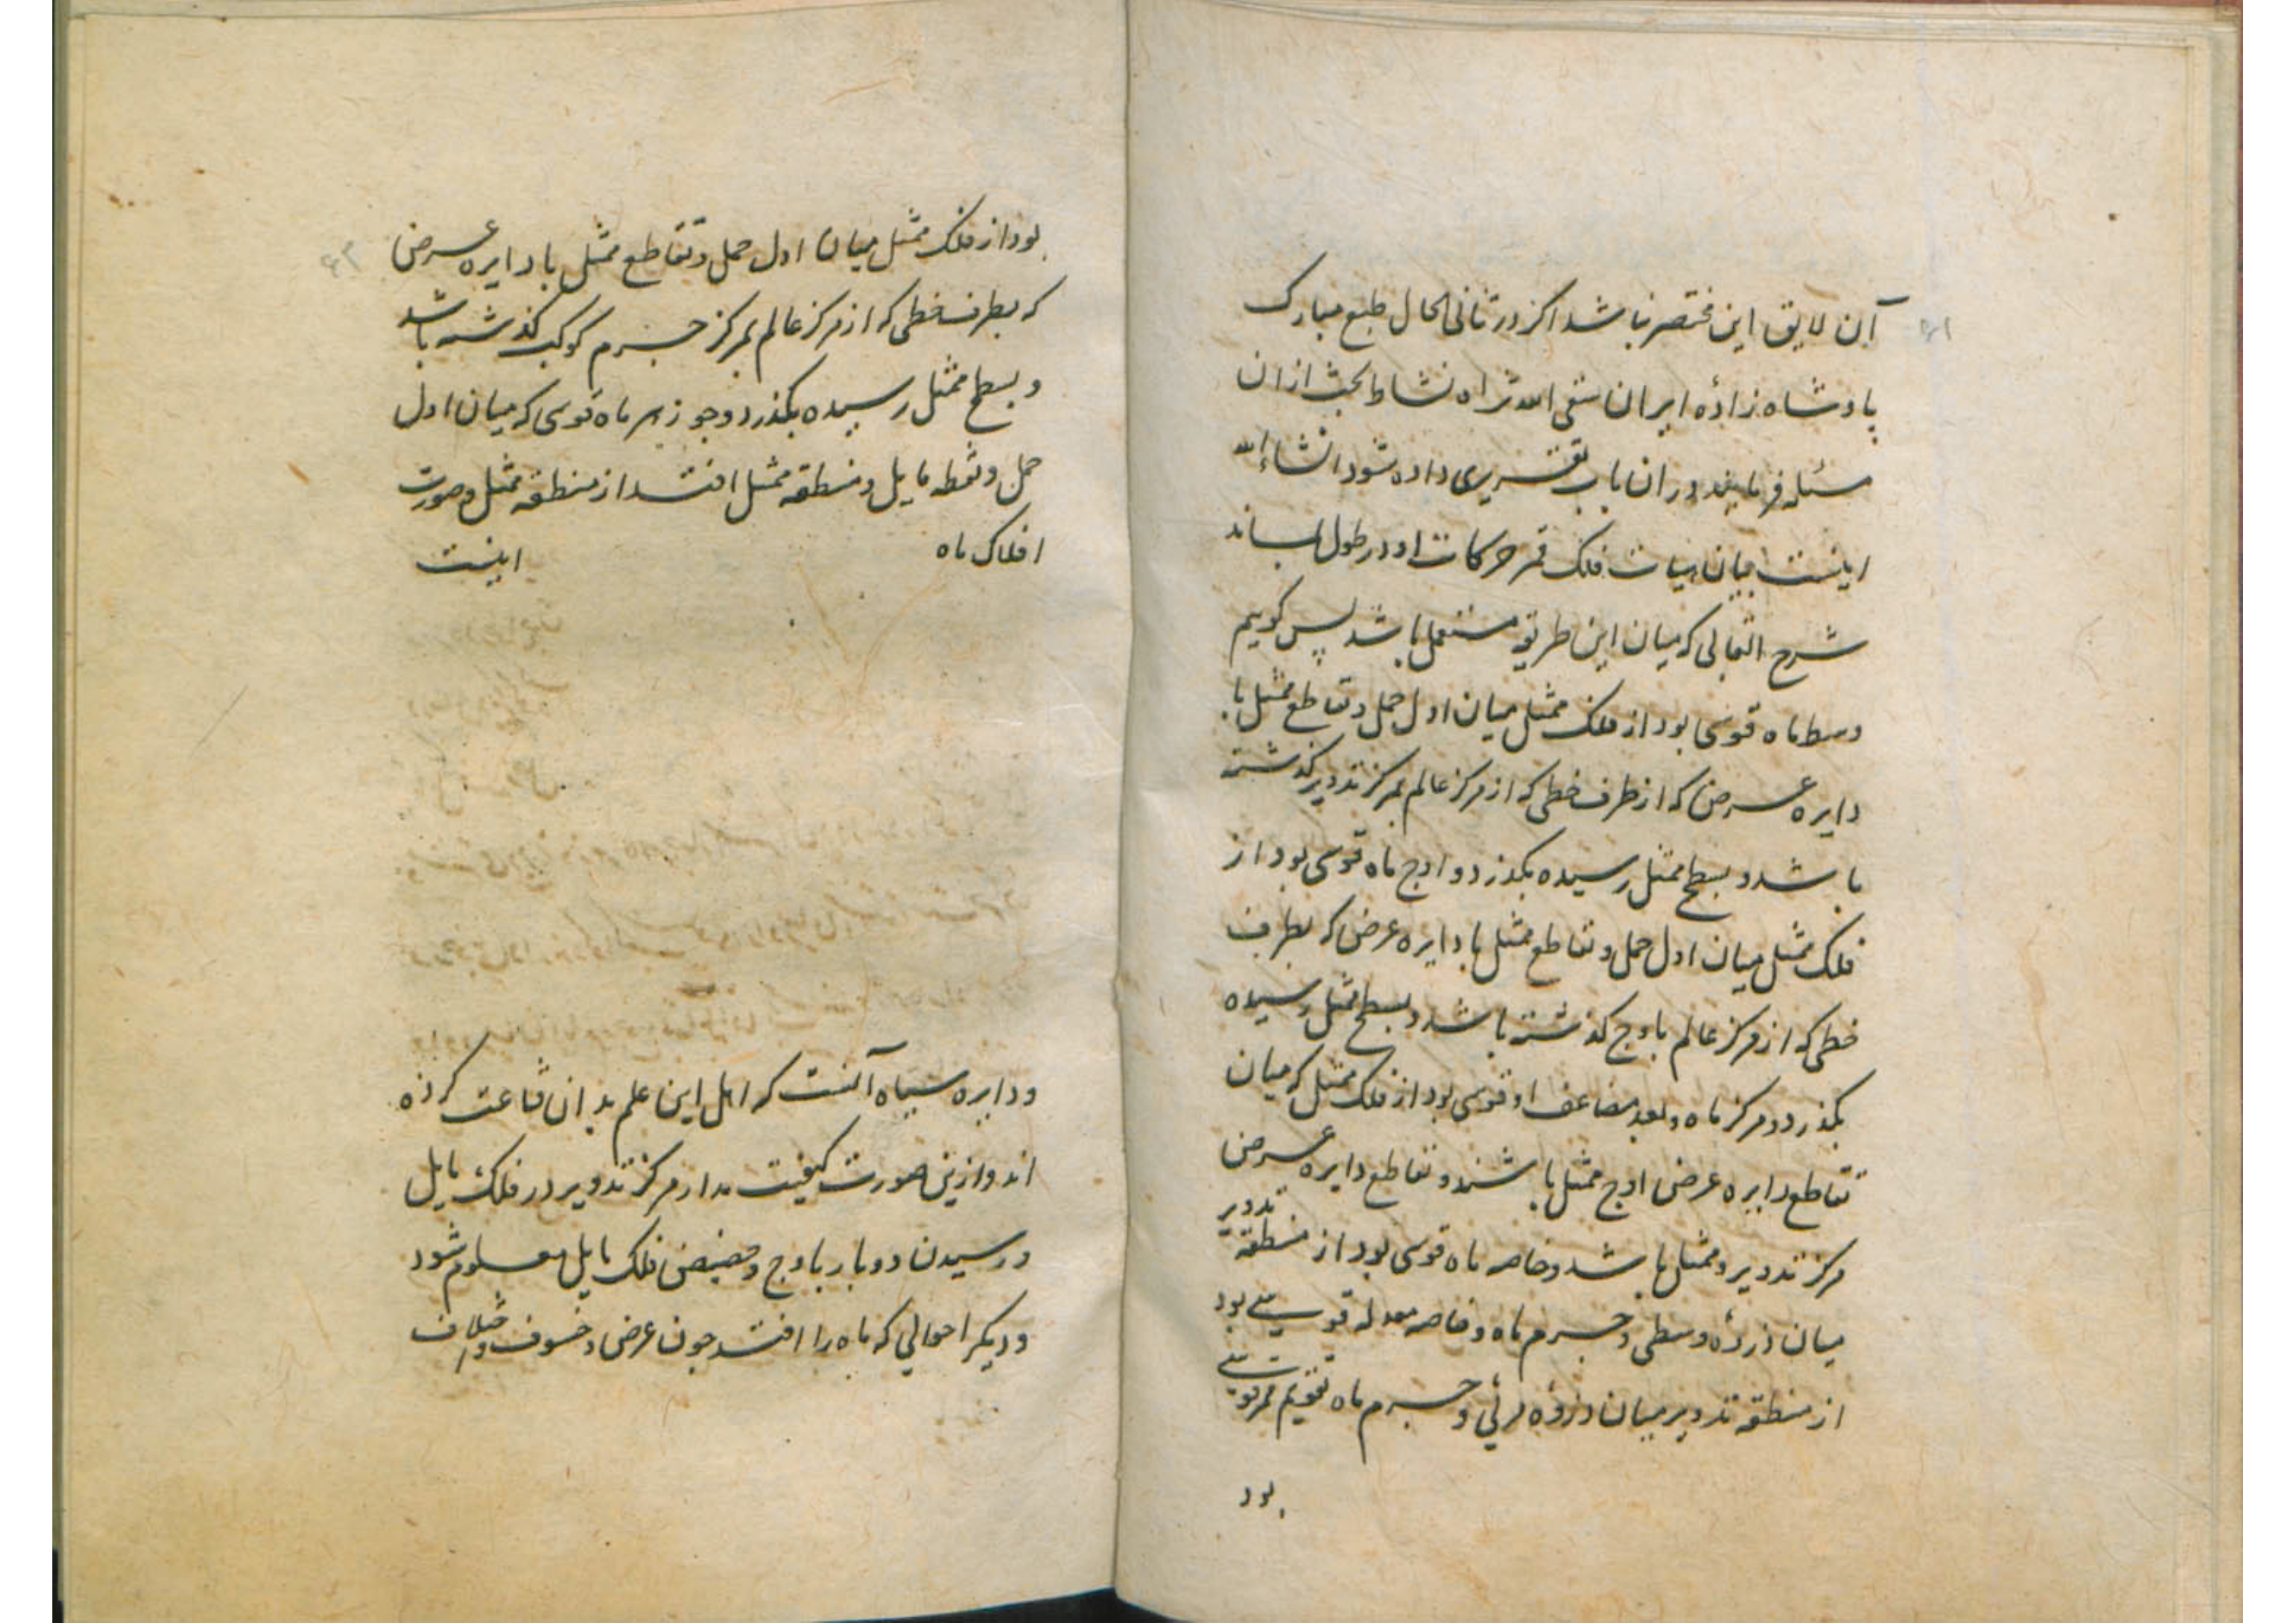 ۶۱
آن لایق این مختصر نباشد اکر در ثانی الحال طبع مبارک
پادشاه زادهٔ ایران سقی الله ثراه نشاط بحث ازان
مسئله فرمایند دران باب تقریری داده شود انشاء الله
اینست بیان هیات فلک قمر حرکات او در طول
شرح القابی که میان این طریق مستعمل باشد پس کوییم
وسط ماه قوسی بود از فلک ممثل میان اول حمل و تقاطع ممثل با
دایره عرض که از طرف خطی که از مرکز عالم بمرکز تدویر کذشته
باشد و بسطح ممثل رسیده بکذرد و اوج ماه قوسی بود از
فلک ممثل میان اول حمل و تقاطع ممثل با دایره عرض که بطرف
خطی که از مرکز عالم باوج کذشته باشد و بسطح ممثل رسیده
بکذرد و مرکز ماه و بعد مضاعف او قوسی بود از فلک ممثل که میان
تقاطع دایره عرض اوج ممثل باشند و تقاطع دایره عرض
مرکز تدویر و ممثل باشد و خاصه ماه قوسی بود از منطقه تدویر
میان ذروهٔ وسطی و جرم ماه و خاصه معدله قوسی بود
از منطقه تدویر میان ذروه مرئی و جرم ماه تقویم قمر قوسی
بود
۶۲
بود از فلک ممثل میان اول حمل و تقاطع ممثل با دایره عرض
که بطرف خطی که از مرکز عالم بمرکز جرم کوکب کذشته باشد
و بسطح ممثل رسیده بکذرد و جوزهر ماه قوسی که میان اول
حمل و نقطه مایل و منطقه ممثل افتد از منطقه ممثل و صورت
افلاک ماه اینست
و دایره سیاه آنست که اهل این علم بدان قناعت کرده
اند و ازین صورت کیفیت مدار مرکز تدویر در فلک مایل
و رسیدن دو بار باوج و حضیض فلک مایل معلوم شود
و دیکر احوالی که ماه را افتد چون عرض و خسوف و اختلاف